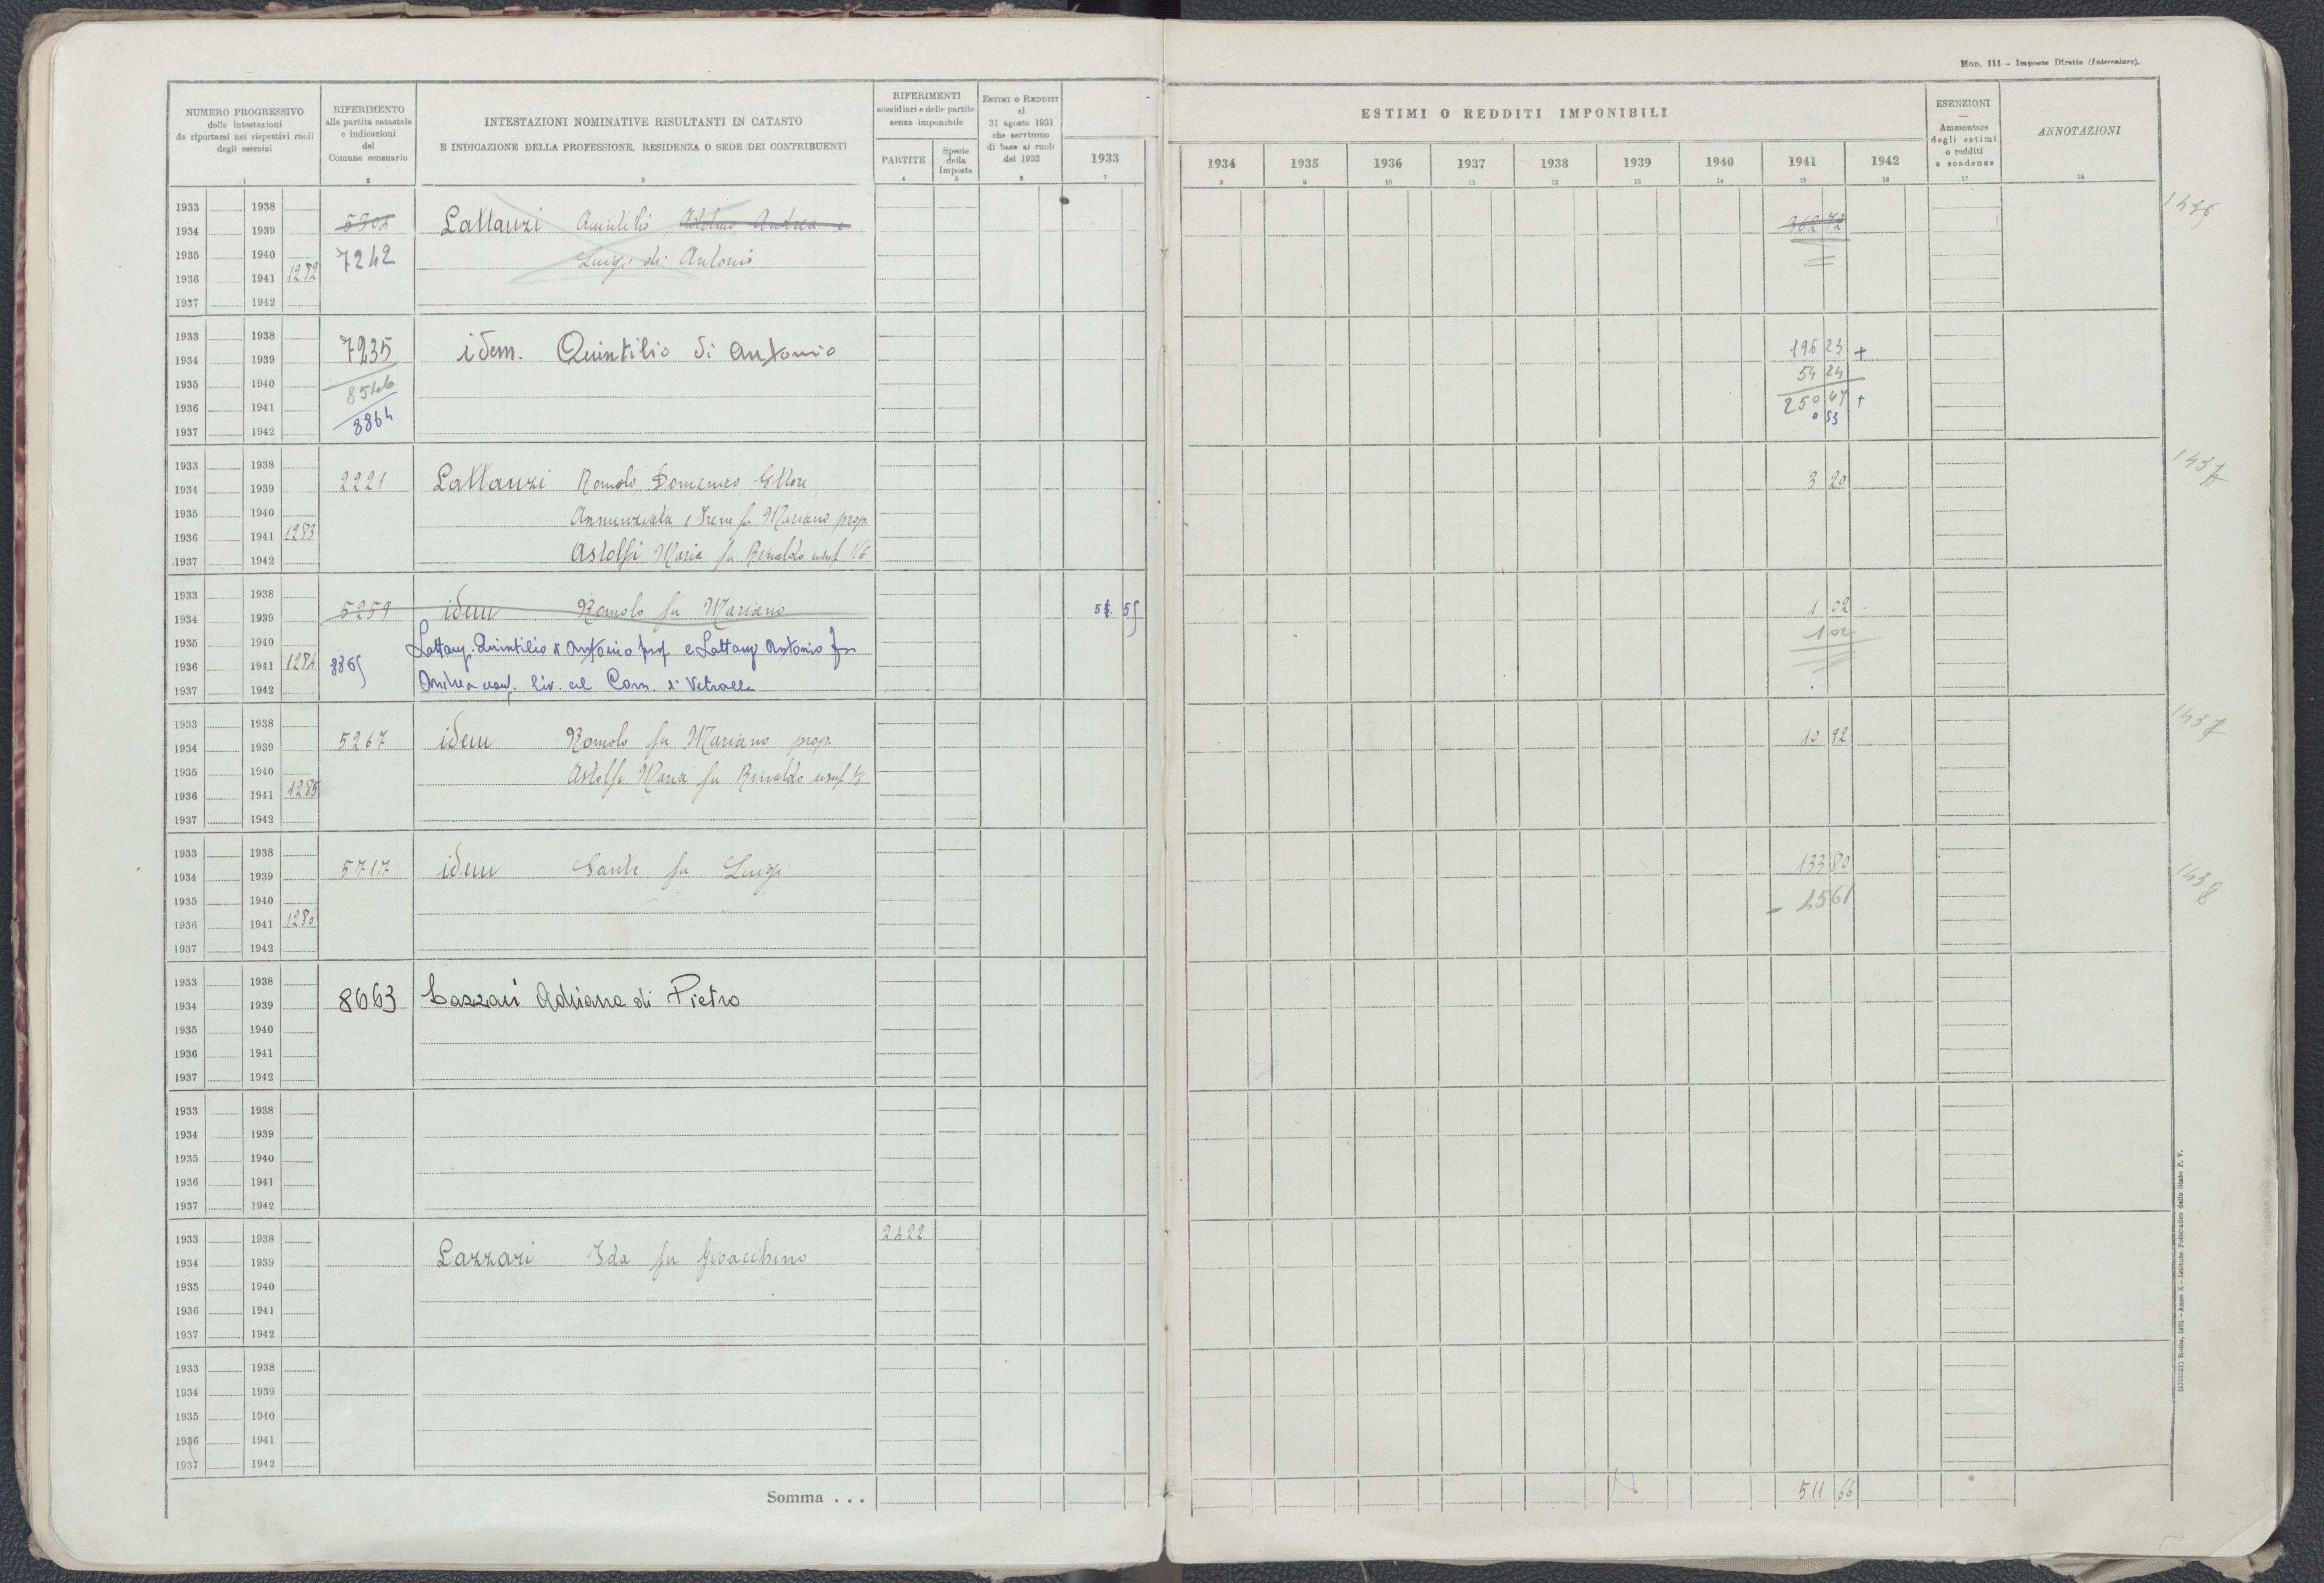 Mon. 111 - Imposte Dirette (Intercalare).
NUMERO PROGRESSIVO
delle intestazioni
da riportarsi nei rispettivi ruoli
degli esercizi
1
RIFERIMENTO
alla partita catastale
e indicazioni
del
Comune censuario
2
INTESTAZIONI NOMINATIVE RISULTANTI IN CATASTO
E INDICAZIONE DELLA PROFESSIONE, RESIDENZA O SEDE DEI CONTRIBUENTI
3
RIFERIMENTI
sussidiari e delle partite
senza imponibile
PARTITE
4
Specie
della
imposta
5
ESTIMI O REDDITI
al
31 agosto 1931
che servirono
di base ai ruoli
del 1932
6
ESTIMI O REDDITI IMPONIBILI
1933 1934 1935 1936 1937 1938 1939 1940 1941 1942
7 8 9 10 11 12 13 14 15 16
ESENZIONI
—
Ammontare
degli estimi
o redditi
e scadenze
17
ANNOTAZIONI
18
1933 1938
1934 1939 5302 Lattanzi Quintilio Andrea e 362 72 1436
1935 1940 7242 Luigi di Antonio
1936 1941 1282
1937 1942
1933 1938
1934 1939 7235 idem. Quintilio di Antonio 196 23 +
1935 1940 8546 54 24
1936 1941 250 47 +
1937 1942 8864 0 53
1933 1938
1934 1939 2221 Lattanzi Romolo Domenico, Ettore, 3 20 1437
1935 1940 Annunziata e Irene fu Mariano prop.
1936 1941 1283
1937 1942 Astolfi Maria fu Rinaldo usuf. 1/6
1933 1938
1934 1939 5259 idem Romolo fu Mariano 55 1 02
1935 1940 Quintilio di Antonio prop. e Antonio fu 1 02
1936 1941 1284 8865
1937 1942 Andrea usuf. liv. al Com. di Vetralla
1933 1938
1934 1939 5267 idem Romolo fu Mariano prop. 10 92 1437
1935 1940 Astolfi Maria fu Rinaldo usuf.
1936 1941 1285
1937 1942
1933 1938
1934 1939 5717 idem Sante fu Luigi 133 80 1438
1935 1940 - 45 61
1936 1941 1286
1937 1942
1933 1938
1934 1939 8663 Lazzari Adriana di Pietro
1935 1940
1936 1941
1937 1942
1933 1938
1934 1939
1935 1940
1936 1941
1937 1942
1933 1938 2422
1934 1939 Lazzari Ida fu Gioacchino
1935 1940
1936 1941
1937 1942
1933 1938
1934 1939
1935 1940
1936 1941
1937 1942
Somma . . . 511 66
Roma, 1931 - Anno X - Istituto Poligrafico dello Stato P. V.